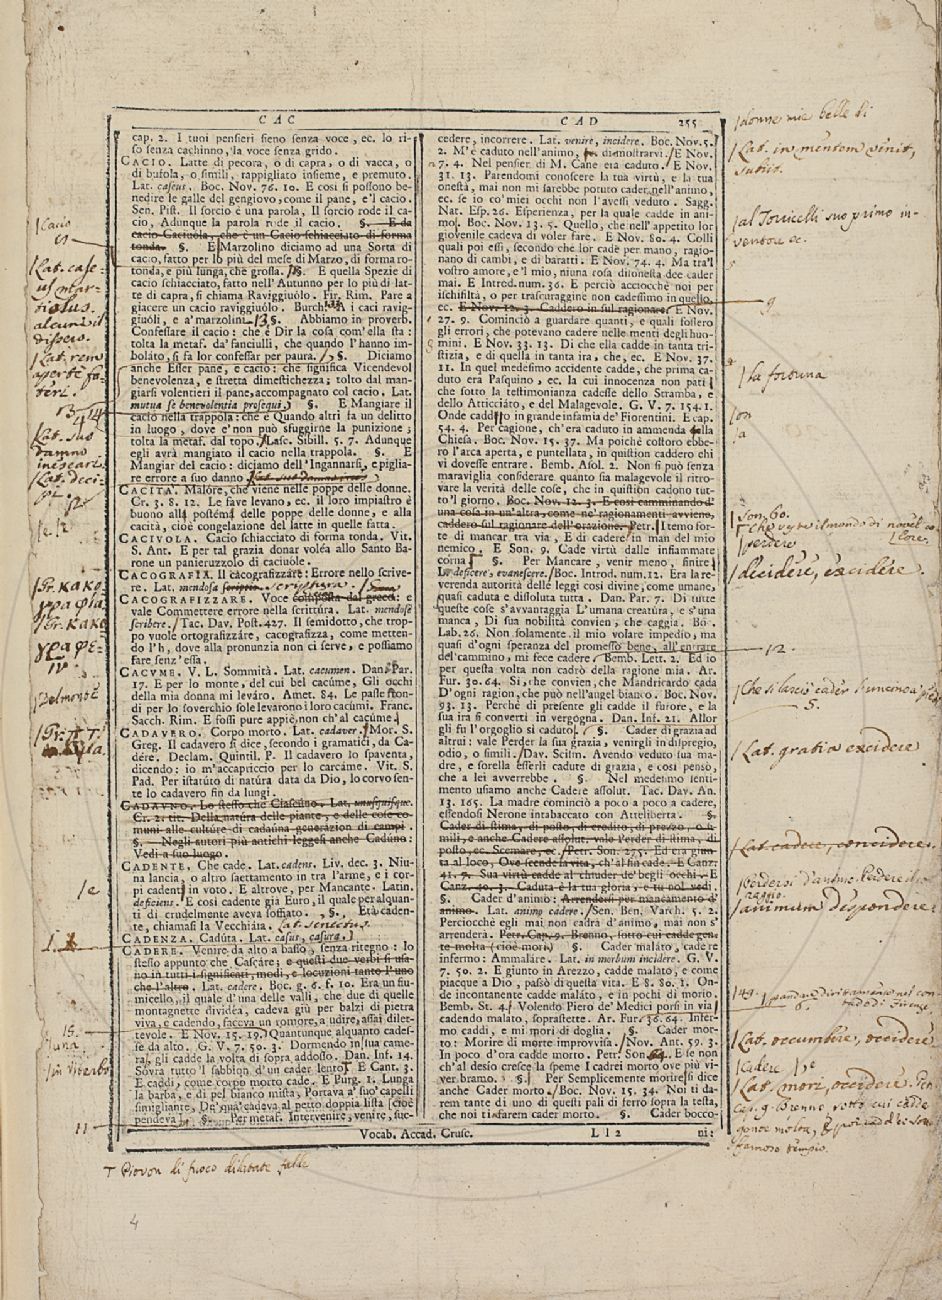 CAC
CAD 255
cap. 2. I tuoi pensieri sieno senza voce, ec. lo ri-
so senza cachinno, la voce senza grido.
CACIO. Latte di pecora, o di capra, o di vacca, o
di bufola, o simili, rappigliato insieme, e premuto.
Lat. caseus. Boc. Nov. 76. 10. E così si possono be-
nedire le galle del gengiovo, come il pane, e'l cacio.
Sen. Pist. Il sorcio è una parola, Il sorcio rode il ca-
cio, Adunque la parola rode il cacio. §. E da
cacio Caciuola, che è un Cacio schiacciato di forma
tonda. §. E Marzolino diciamo ad una Sorta di
cacio, fatto per lo più del mese di Marzo, di forma ro-
tonda, e più lunga, che grossa. §. E quella Spezie di
cacio schiacciato, fatto nell'Autunno per lo più di lat-
te di capra, si chiama Raviggiuólo. Fir. Rim. Pare a
giacere un cacio raviggiuolo. Burch. A i caci ravig-
giuoli, e a' marzolini. §. Abbiamo in proverb.
Confessare il cacio: che è Dir la cosa com'ella sta:
tolta la metaf. da' fanciulli, che quando l'hanno im-
boláto, si fa lor confessar per paura. §. Diciamo
anche Esser pane, e cacio: che significa Vicendevol
benevolenza, e stretta dimestichezza; tolto dal man-
giarsi volentieri il pane, accompagnato col cacio. Lat.
mutua se benevolentia prosequi. §. E Mangiare il
cacio nella trappola: che è Quando altri fa un delitto
in luogo, dove e' non può sfuggirne la punizione;
tolta la metaf. dal topo. Lasc. Sibill. 5. 7. Adunque
egli avrà mangiato il cacio nella trappola. §. E
Mangiar del cacio: diciamo dell'Ingannarsi, e piglia-
re errore a suo danno
CACITÀ. Malóre, che viene nelle poppe delle donne.
Cr. 3. 8. 12. Le fave levano, ec. il loro impiastro è
buono alle posteme delle poppe delle donne, e alla
cacità, cioè congelazione del latte in quelle fatta.
CACIVOLA. Cacio schiacciato di forma tonda. Vit.
S. Ant. E per tal grazia donar voléa allo Santo Ba-
rone un panieruzzolo di caciuole.
CACOGRAFIA. Il cacografizzáre: Errore nello scrive-
re. Lat. mendosa scriptio.
CACOGRAFIZZARE. Voce composta dal greco: e
vale Commettere errore nella scrittura. Lat. mendosè
scribere. Tac. Dav. Post. 427. Il semidotto, che trop-
po vuole ortografizzáre, cacografizza, come metten-
do l'h, dove alla pronunzia non ci serve, e possiamo
fare senz'essa.
CACVME. V. L. Sommità. Lat. cacumen. Dan. Par.
17. E per lo monte, del cui bel cacúme, Gli occhi
della mia donna mi leváro. Amet. 84. Le paste fron-
di per lo soverchio sole levarono i loro cacúmi. Franc.
Sacch. Rim. E fossi pure appiè, non ch'al cacúme.
CADAVERO. Corpo morto. Lat. cadaver. Mor. S.
Greg. Il cadavero si dice, secondo i gramatici, da Ca-
dére. Declam. Quintil. P. Il cadavero lo spaventa,
dicendo: io m'accapriccio per lo carcáme. Vit. S.
Pad. Per istatúto di natúra data da Dio, lo corvo sen-
te lo cadavero fin da lungi.
CADAVNO. Lo stesso che Ciascúno. Lat. unusquisque.
Cr. 2. tit. Della natúra delle piante, e delle cose co-
muni alle cultúre di cadaúna generazion di campi.
§. Negli autori più antichi leggesi anche Cadúno:
Vedi a suo luogo.
CADENTE. Che cade. Lat. cadens. Liv. dec. 3. Niu-
na lancia, o altro saettamento in tra l'arme, e i cor-
pi cadenti in voto. E altrove, per Mancante. Latin.
deficiens. E così cadente già Euro, il quale per alquan-
ti di crudelmente aveva soffiato. §. Età caden-
te, chiamasi la Vecchiáia. Lat. senectus
CADENZA. Cadúta. Lat. casus, casura.
CADERE. Venire da alto a basso, senza ritegno: lo
stesso appunto che Cascáre; e questi due verbi si usa-
no in tutti i significati, modi, e locuzioni tanto l'uno
che l'altro. Lat. cadere. Boc. g. 6. f. 10. Era un fiu-
micello, il quale d'una delle valli, che due di quelle
montagnette dividéa, cadeva giù per balzi di pietra
viva, e cadendo, faceva un romore, a udire, assai dilet-
tevole. E Nov. 15. 19. Quantunque alquanto cades-
se da alto. G. V. 7. 50. 3. Dormendo in sua came-
ra, gli cadde la volta di sopra addosso. Dan. Inf. 14.
Sovra tutto 'l sabbion d'un cader lento. E Cant. 3.
E caddi, come corpo morto cade. E Purg. 1. Lunga
la barba, e di pel bianco mista, Portava a' suo' capelli
simigliante, De' qua' cadeva al petto doppia lista (cioè
pendeva). §. Per metaf. Intervenire, venire, suc-
cedere, incorrere. Lat. venire, incidere. Boc. Nov. 5.
2. M'è caduto nell'animo, dimostrarvi. E Nov.
7. 4. Nel pensier di M. Cane era caduto. E Nov.
31. 13. Parendomi conoscere la tua virtù, e la tua
onestà, mai non mi sarebbe potuto cader nell'animo,
ec. se io co' miei occhi non l'avessi veduto. Sagg.
Nat. Esp. 26. Esperienza, per la quale cadde in ani-
mo. Boc. Nov. 13. 5. Quello, che nell'appetito lor
giovenile cadeva di voler fare. E Nov. 80. 4. Colli
quali poi essi, secondo che lor cade per mano, ragio-
nano di cambi, e di baratti. E Nov. 74. 4. Ma tra'l
vostro amore, e'l mio, niuna cosa disonesta dee cader
mai. E Introd. num. 36. E perciò acciocchè noi per
ischifiltà, o per trascuraggine non cadessimo in quello,
ec. E Nov. 12. 3. Caddero in sul ragionare. E Nov.
27. 9. Cominciò a guardare quanti, e quali fossero
gli errori, che potevano cadere nelle menti degli huo-
mini. E Nov. 33. 13. Di che ella cadde in tanta tri-
stizia, e di quella in tanta ira, che, ec. E Nov. 37.
11. In quel medesimo accidente cadde, che prima ca-
duto era Pasquino, ec. la cui innocenza non patì
che sotto la testimonianza cadesse dello Stramba, e
dello Atticciáto, e del Malagevole. G. V. 7. 154. 1.
Onde cadde in grande infamia de' Fiorentini. E cap.
54. 4. Per cagione, ch'era caduto in ammenda alla
Chiesa. Boc. Nov. 15. 37. Ma poichè costoro ebbe-
ro l'arca aperta, e puntellata, in quistion caddero chi
vi dovesse entrare. Bemb. Asol. 2. Non si può senza
maraviglia considerare quanto sia malagevole il ritro-
vare la verità delle cose, che in quistion cadono tut-
to'l giorno. Boc. Nov. 12. 3. E così camminando d'
una cosa in un'altra, come ne' ragionamenti avvieno,
caddero sul ragionare dell'orazione. Petr. I temo for-
te di mancar tra via, E di cadere in man del mio
nemico. E Son. 9. Cade virtù dalle infiammate
corna. §. Per Mancare, venir meno, finire
La. deficere, evanescere. Boc. Introd. num. 12. Era la re-
verenda autorità delle leggi così divine, come umane,
quasi caduta e dissoluta tutta. Dan. Par. 7. Di tutte
queste cose s'avvantaggia L'umana creatura, e s'una
manca, Di sua nobilità convien, che caggia. Boc.
Lab. 26. Non solamente il mio volare impedío, ma
quasi d'ogni speranza del promesso bene, all'entrare
del cammino, mi fece cadere. Bemb. Lett. 2. Ed io
per questa volta non cadrò della ragione mia. Ar.
Fur. 30. 64. Sì, che convien, che Mandricardo cada
D'ogni ragion, che può nell'angel bianco. Boc. Nov.
93. 13. Perchè di presente gli cadde il furore, e la
sua ira si convertì in vergogna. Dan. Inf. 21. Allor
gli fu l'orgoglio sì caduto. §. Cader di grazia ad
altrui: vale Perder la sua grazia, venirgli in dispregio,
odio, o simili. Dav. Scism. Avendo veduto tua ma-
dre, e sorella esserli cadute di grazia, e così penso,
che a lei avverrebbe. §. Nel medesimo senti-
mento usiamo anche Cadere assolut. Tac. Dav. An.
13. 165. La madre cominciò a poco a poco a cadere,
essendosi Nerone intabaccato con Atteliberta. §.
Cader di stima, di posto, di credito, di prezzo, o si-
mili, e anche Cadere assolut. vale Perder di stima, di
posto, ec. Scemare, ec. Petr. Son. 275. Ed era giun-
ta al loco, Ove scende la vita, ch'al fin cade. E Canz.
41. 7. Sua virtù cadde al chiuder de' begli occhi. E
Canz. 40. 3. Caduta è la tua gloria, e tu nol vedi.
§. Cader d'animo: Arrendersi per mancamento d'
animo. Lat. animo cadere. Sen. Ben. Varch. 5. 2.
Perciocchè egli mai non cadrà d'animo, mai non s'
arrenderà. Petr. Cap. 9. Brenno, sotto cui cadde gen-
te molta (cioè morì) §. Cader maláto, cadere
infermo: Ammaláre. Lat. in morbum incidere. G. V.
7. 50. 2. E giunto in Arezzo, cadde malato, e come
piacque a Dio, passò di questa vita. E 8. 80. 1. On-
de incontanente cadde maláto, e in pochi dì morío.
Bemb. St. 4. Volendo Piero de' Medici porsi in via
cadendo malato, soprastette. Ar. Fur. 36. 64. Infer-
mo caddi, e mi morì di doglia. §. Cader mor-
to: Morire di morte improvvisa. Nov. Ant. 59. 3.
In poco d'ora cadde morto. Petr. Son. 64. E se non
ch'al desio cresce la speme I cadrei morto ove più vi-
ver bramo. §. Per Semplicemente morire si dice
anche Cader morto. Boc. Nov. 15. 34. Noi ti da-
rem tante di uno di questi pali di ferro sopra la testa,
che noi ti farem cader morto. §. Cader bocco-
Vocab. Accad. Crusc. Ll 2 ni:
Cacio
Lat. rem
Lat. suo
damno
Belmonte
in viterbo
15
11
donne mie belle di
Lat. in mentem venit,
subiit.
al Torricelli suo primo in-
ventore ec.
9
la fortuna
Son. 60.
perdere
decidere, excidere
12.
5.
Lat. gratia excidere
Lat. cadere, concidere.
animum despondere
Lat. occumbere, occidere
Cadere
Lat. mori, occidere.
cap. 9. Brenno, sotto cui cadde
gente molta, E poi cadd'ei sotto
famoso tempio.
T Piovon di fuoco dilatate falde
4